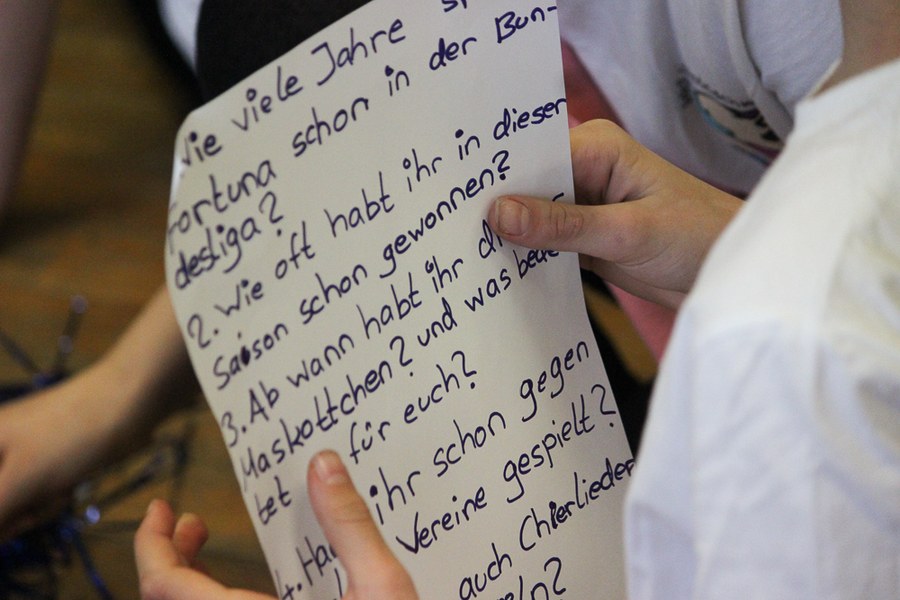 Wie viele Jahre
Fortuna schon in der Bun-
desliga?
2. Wie oft habt ihr in dieser
Saison schon gewonnen?
3. Ab wann habt ihr
Maskottchen? und was bedeu
tet für euch?
4. ihr schon gegen
Vereine gespielt?
auch Chierlieder